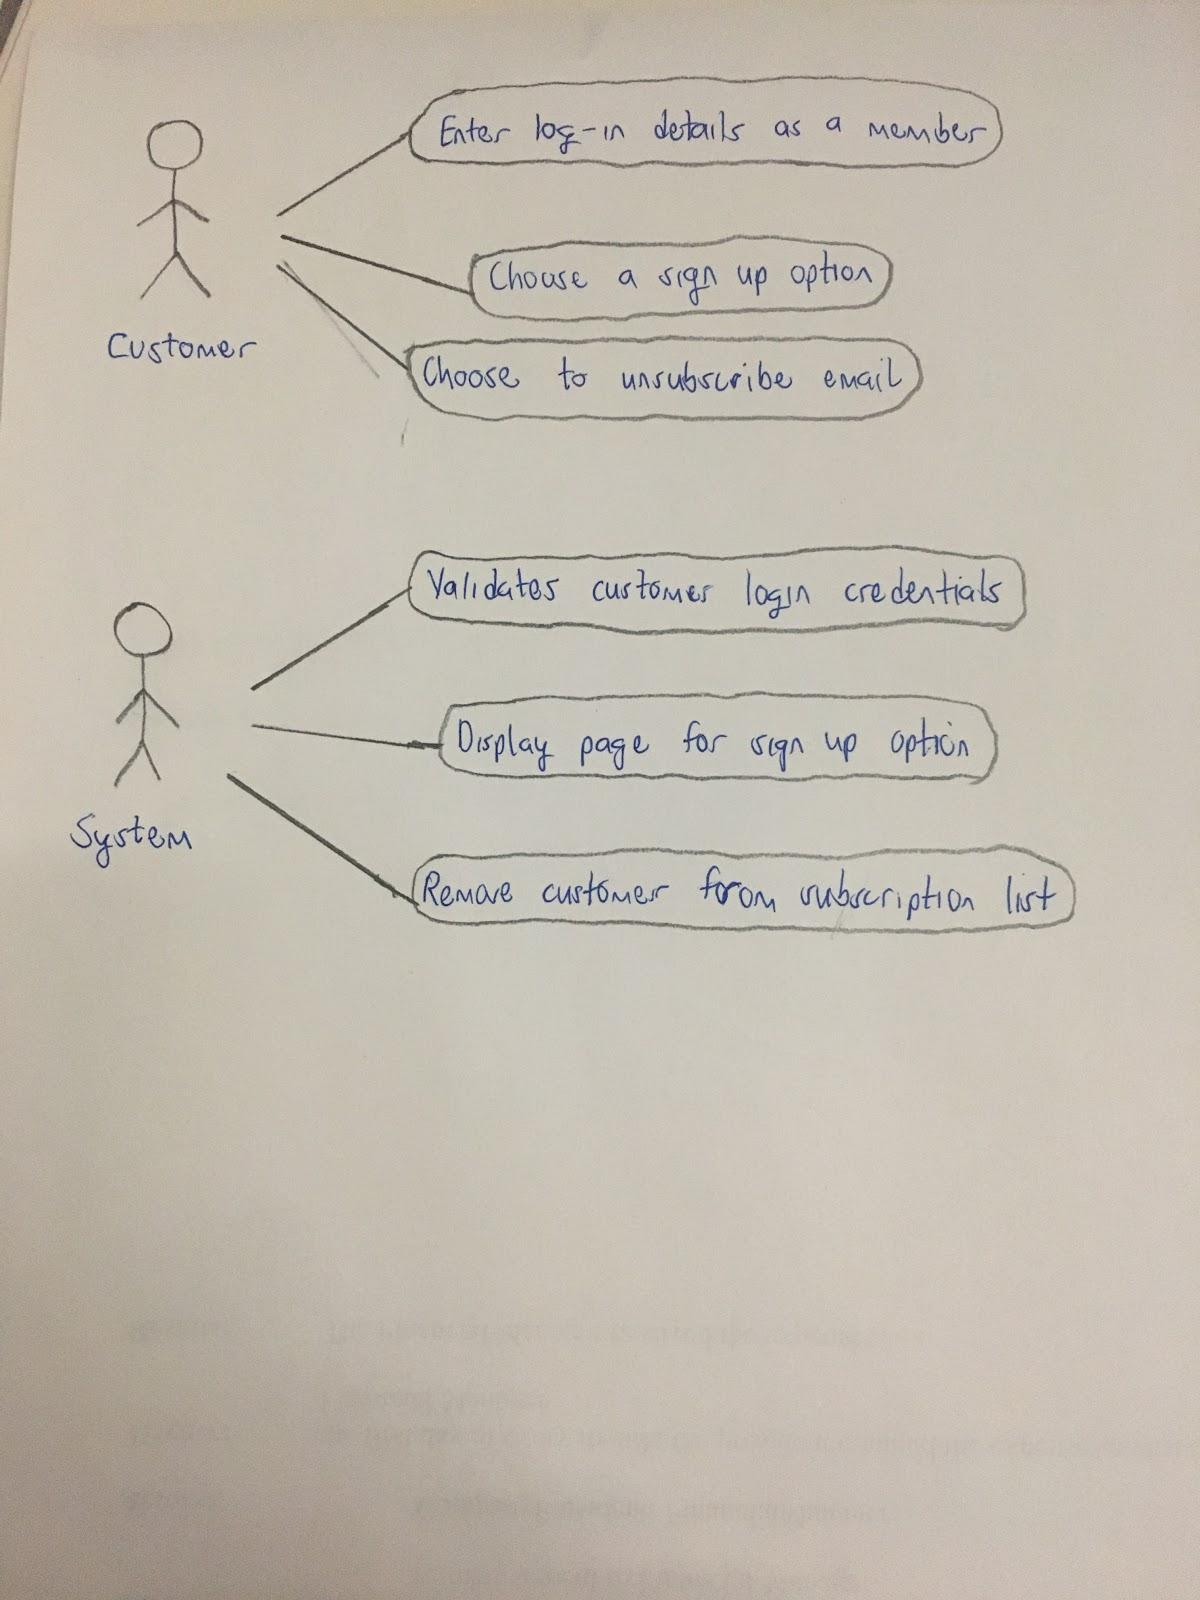 Enter log-in details as a member
Choose a sign up option
Choose to unsubscribe email
Customer
Validates customer login credentials
Display page for sign up option
System
Remove customer from subscription list